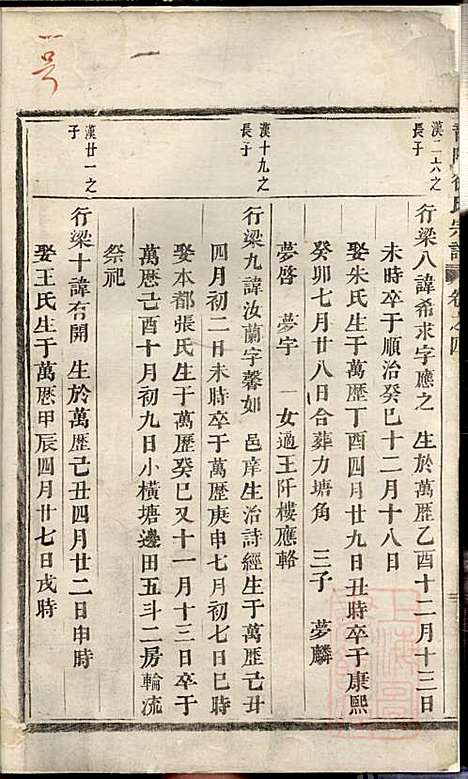 漢二六之
長子
行梁八諱希求字應之 生於萬歷乙酉十二月十三日
未時卒于順治癸巳十二月十八日
娶朱氏生于萬歷丁酉四月廿九日丑時卒于康熙
癸卯七月廿八日合葬力塘角 三子 夢麟
夢啓 夢宇 一女適王阡樓應輅
漢十九之
長子
行梁九諱汝蘭字馨如 邑庠生治詩經生于萬歷己丑
四月初二日未時卒于萬歷庚申七月初七日巳時
娶本都張氏生于萬歷癸巳又十一月十三日卒于
萬歷己酉十月初九日小橫塘邊田五斗二房輪流
祭祀
漢廿一之
子
行梁十諱右開 生於萬歷己丑四月廿二日申時
娶王氏生于萬歷甲辰四月廿七日戌時